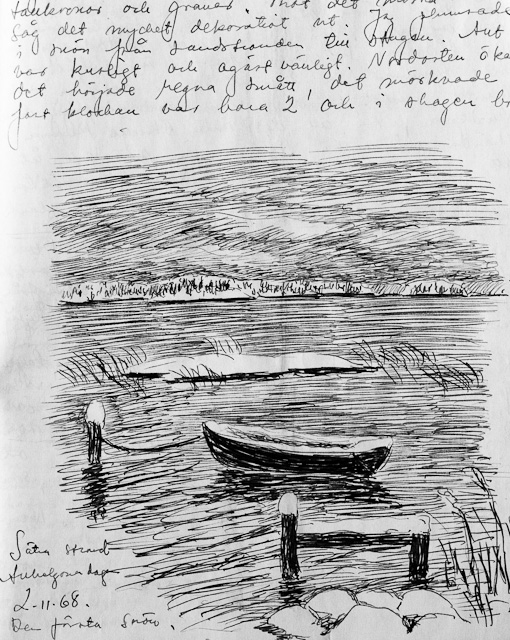 och granar. Mot det
såg det mycket dekorativt ut. Jag plumsade
i snön från sandstranden till stugan. Allt
var kusligt och ogästvänligt. Nordosten öka
det började regna smått, det mörknade
fast klockan var bara 2, och i stugan
Sätra strand
Allhelgona dag
2-11-68.
Den första snön.